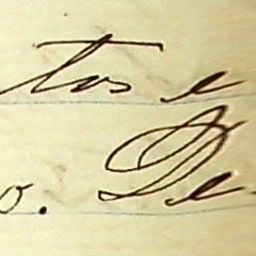 tos e
o. De